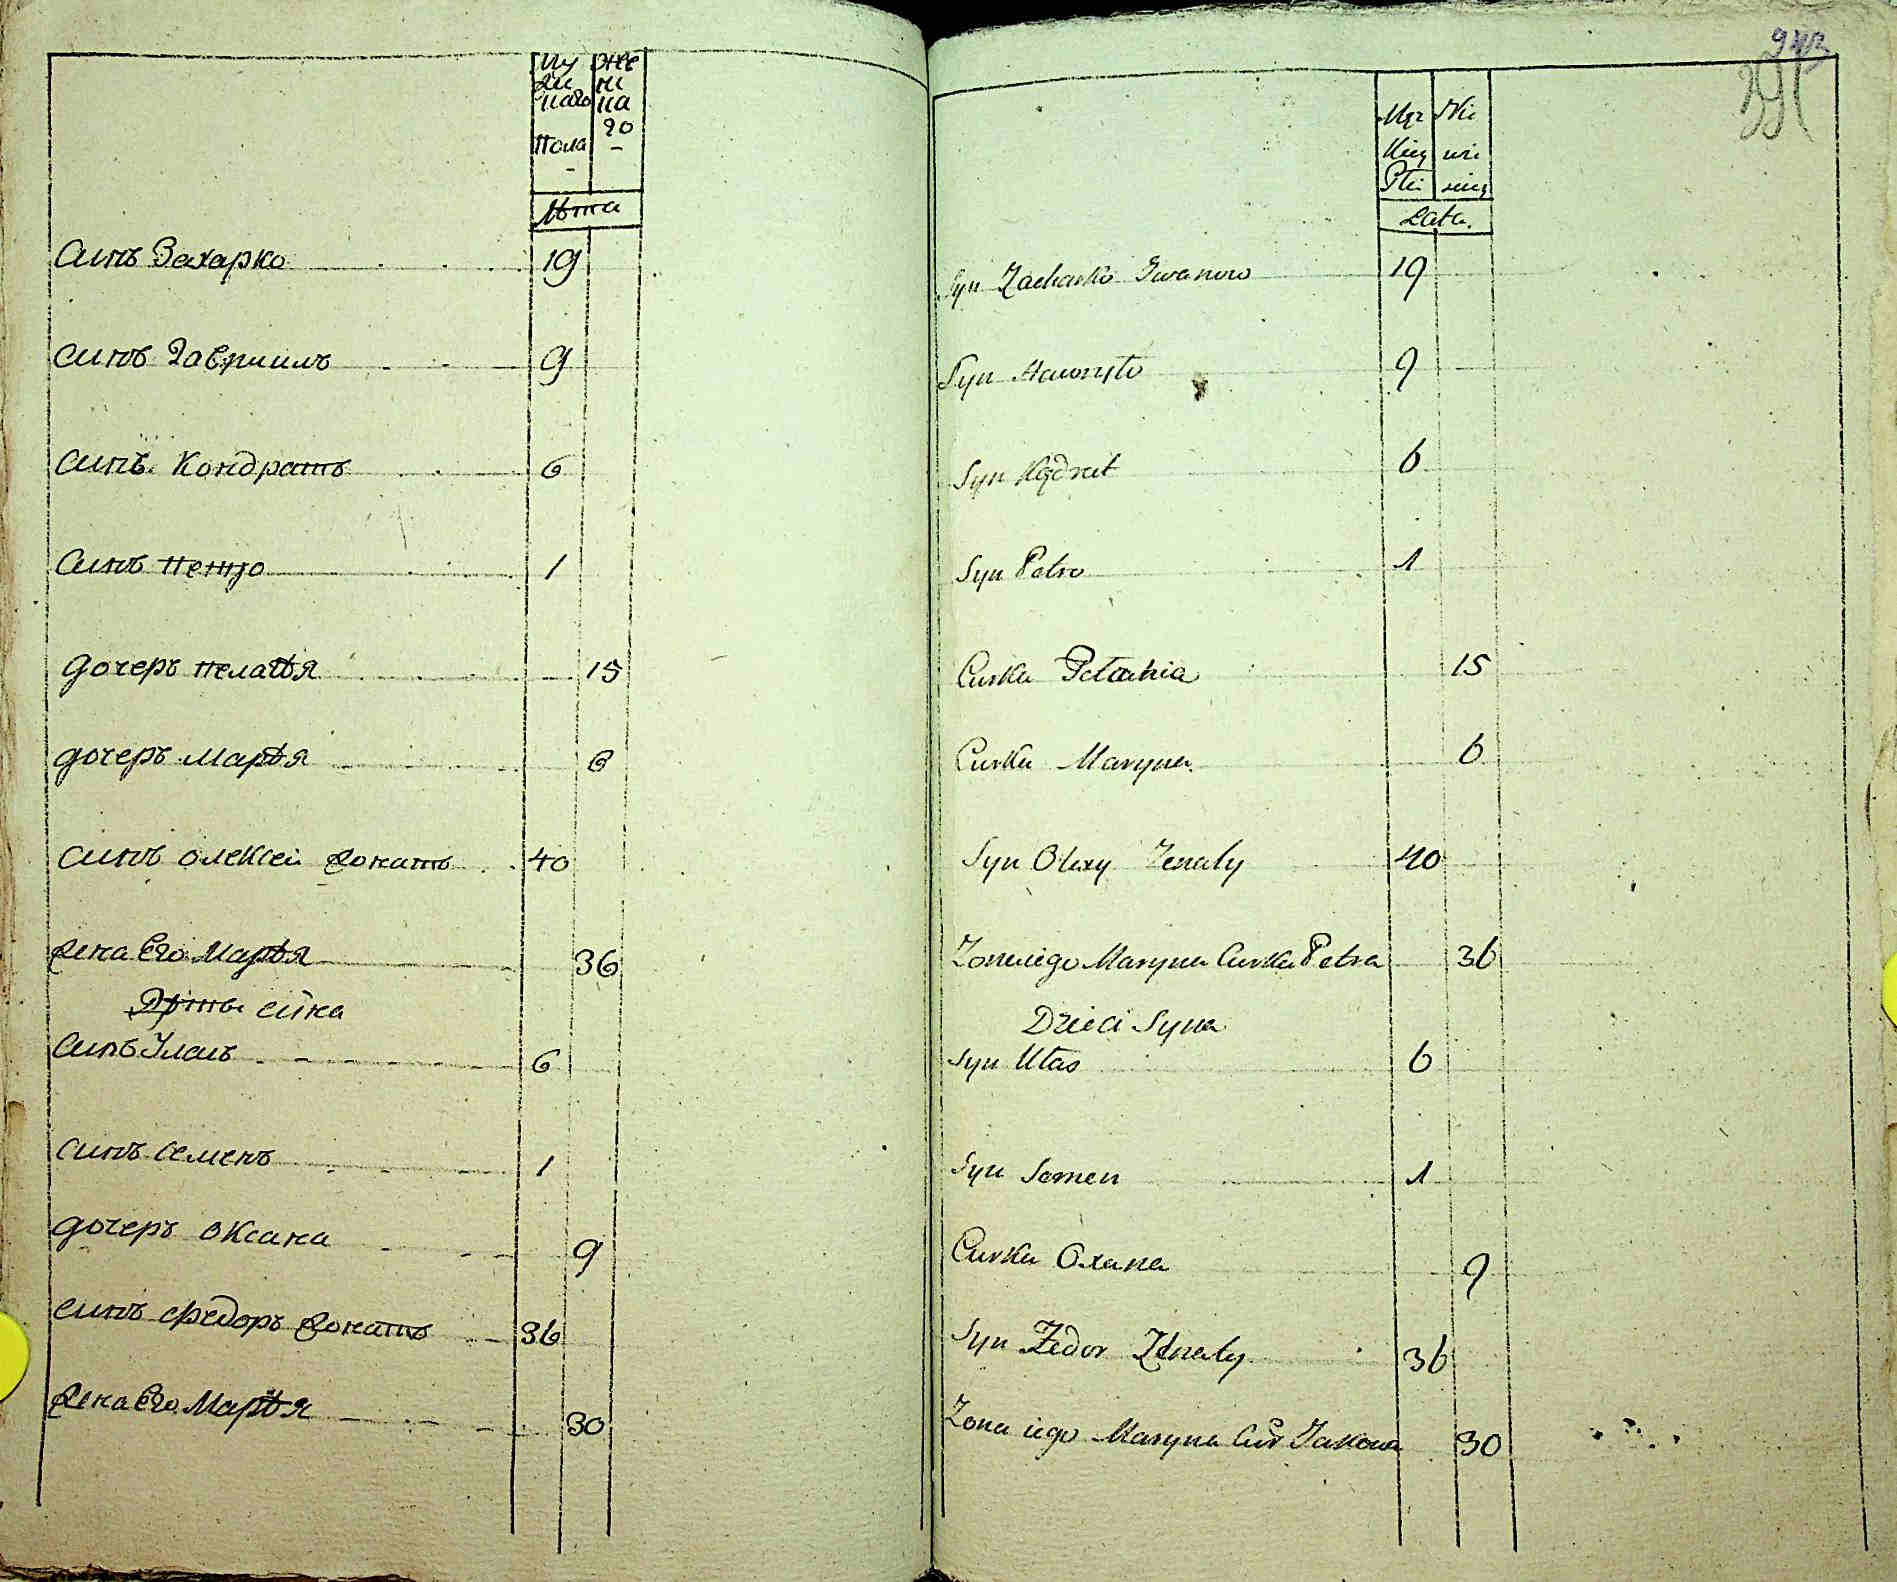 Му жес
жи ки
скаго на
го
Пола
Лѣта
Синъ Захарко 19
Синъ Гавриилъ 9
Синъ Кондратъ 6
Синъ Петро 1
Дочеръ Пелагѣя 15
Дочеръ Марѣя 6
Синъ Олексей жонатъ 40
Жена Его Марѣя 36
Дѣти сина
Синъ Уласъ 6
Синъ Семенъ 1
Дочеръ Оксана 9
Синъ Федоръ жонатъ 36
Жена Его Марѣя 30
Męz Nie
Kiey wie
Płci sciey
Lata
Syn Zacharko Iwanow 19
Syn 9
Syn Kądrat 6
Syn Petro 1
Curka Pełahia 15
Curka Maryna 6
Syn Olexy Zenaty 40
Zona iego Maryna Curka Petra 36
Dzieci Syna
Syn Ułas 6
Syn Semen 1
Curka Oxana 9
Syn Fedor Zenaty 36
Zona iego Maryna Cur Jakowa 30